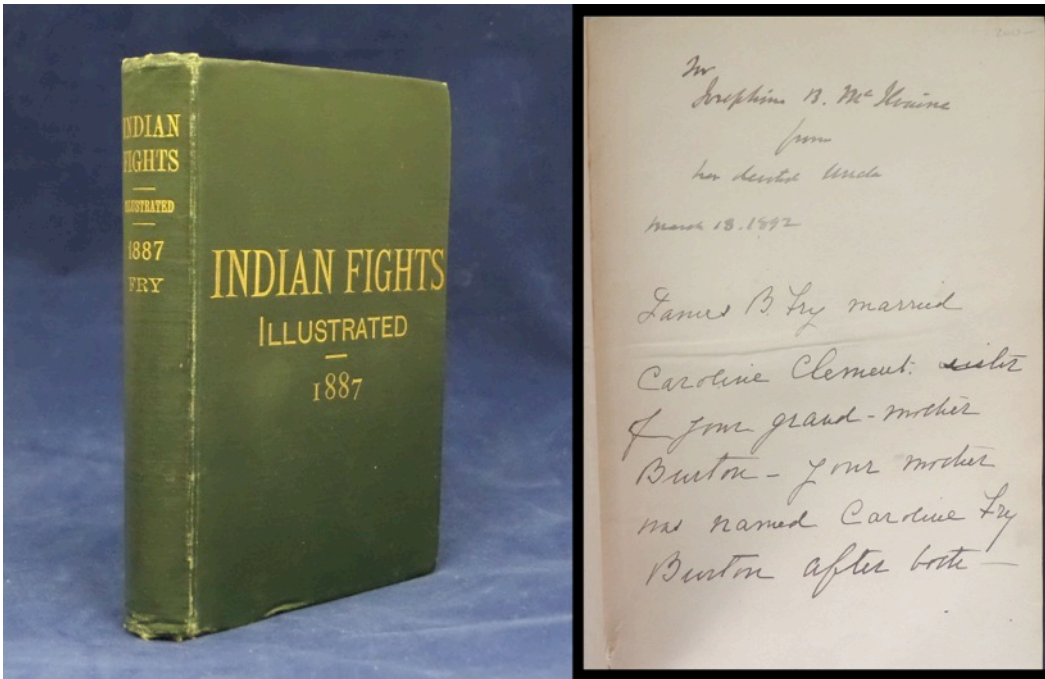 INDIAN
FIGHTS
ILLUSTRATED
1887
FRY
INDIAN FIGHTS
ILLUSTRATED
1887
Josephine B. McIlvaine
from
her devoted Uncle
March 13. 1892
James B. Fry married
Caroline Clement. sister
of your grand-mother
Burton - your mother
was named Caroline Fry
Burton after both -